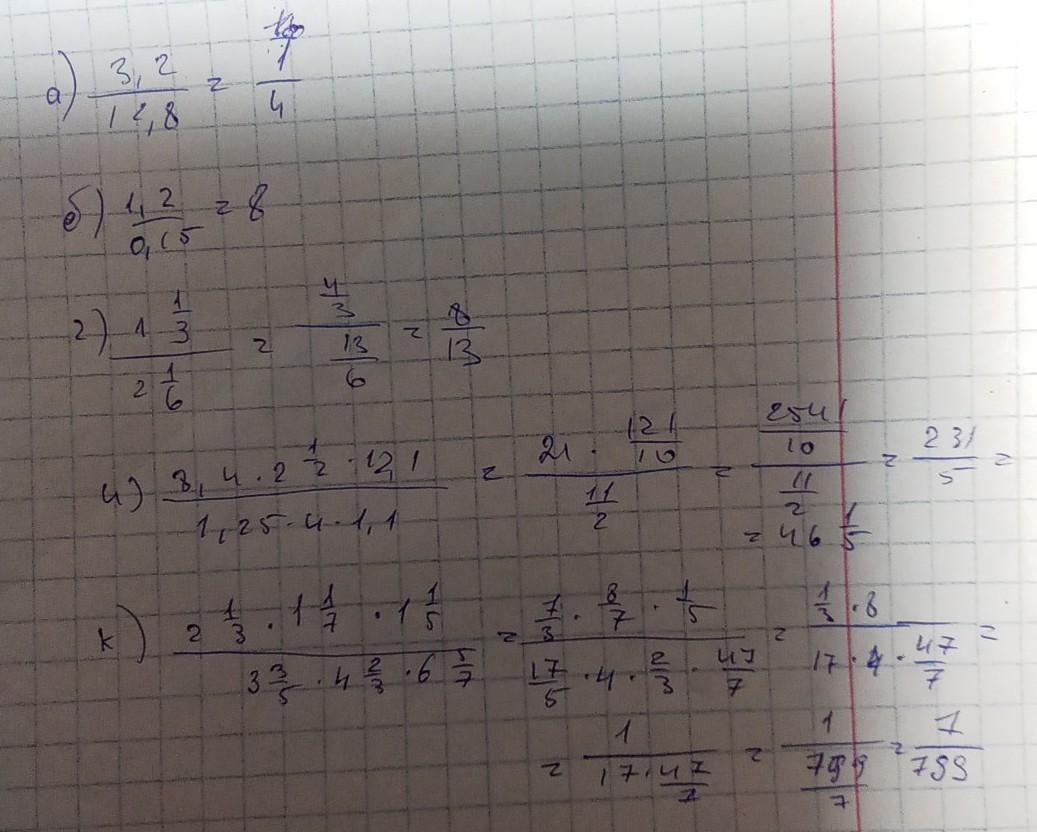 а) 3,2 / 12,8 = 1 / 4
б) 1,2 / 0,15 = 8
г) 1 1/3 / 2 1/6 = 4/3 / 13/6 = 8 / 13
и) 8,4 · 2 1/2 · 12,1 / 1,25 · 4 · 1,1 = 21 · 121/10 / 11/2 = 2541/10 / 11/2 = 231 / 5 =
= 46 1/5
к) 2 1/3 · 1 1/7 · 1 1/5 / 3 3/5 · 4 2/3 · 6 5/7 = 7/3 · 8/7 · 1/5 / 17/5 · 4 · 2/3 · 47/7 = 1/3 · 8 / 17 · 4 · 47/7 =
= 1 / 17 · 47/7 = 1 / 799/7 = 7 / 799